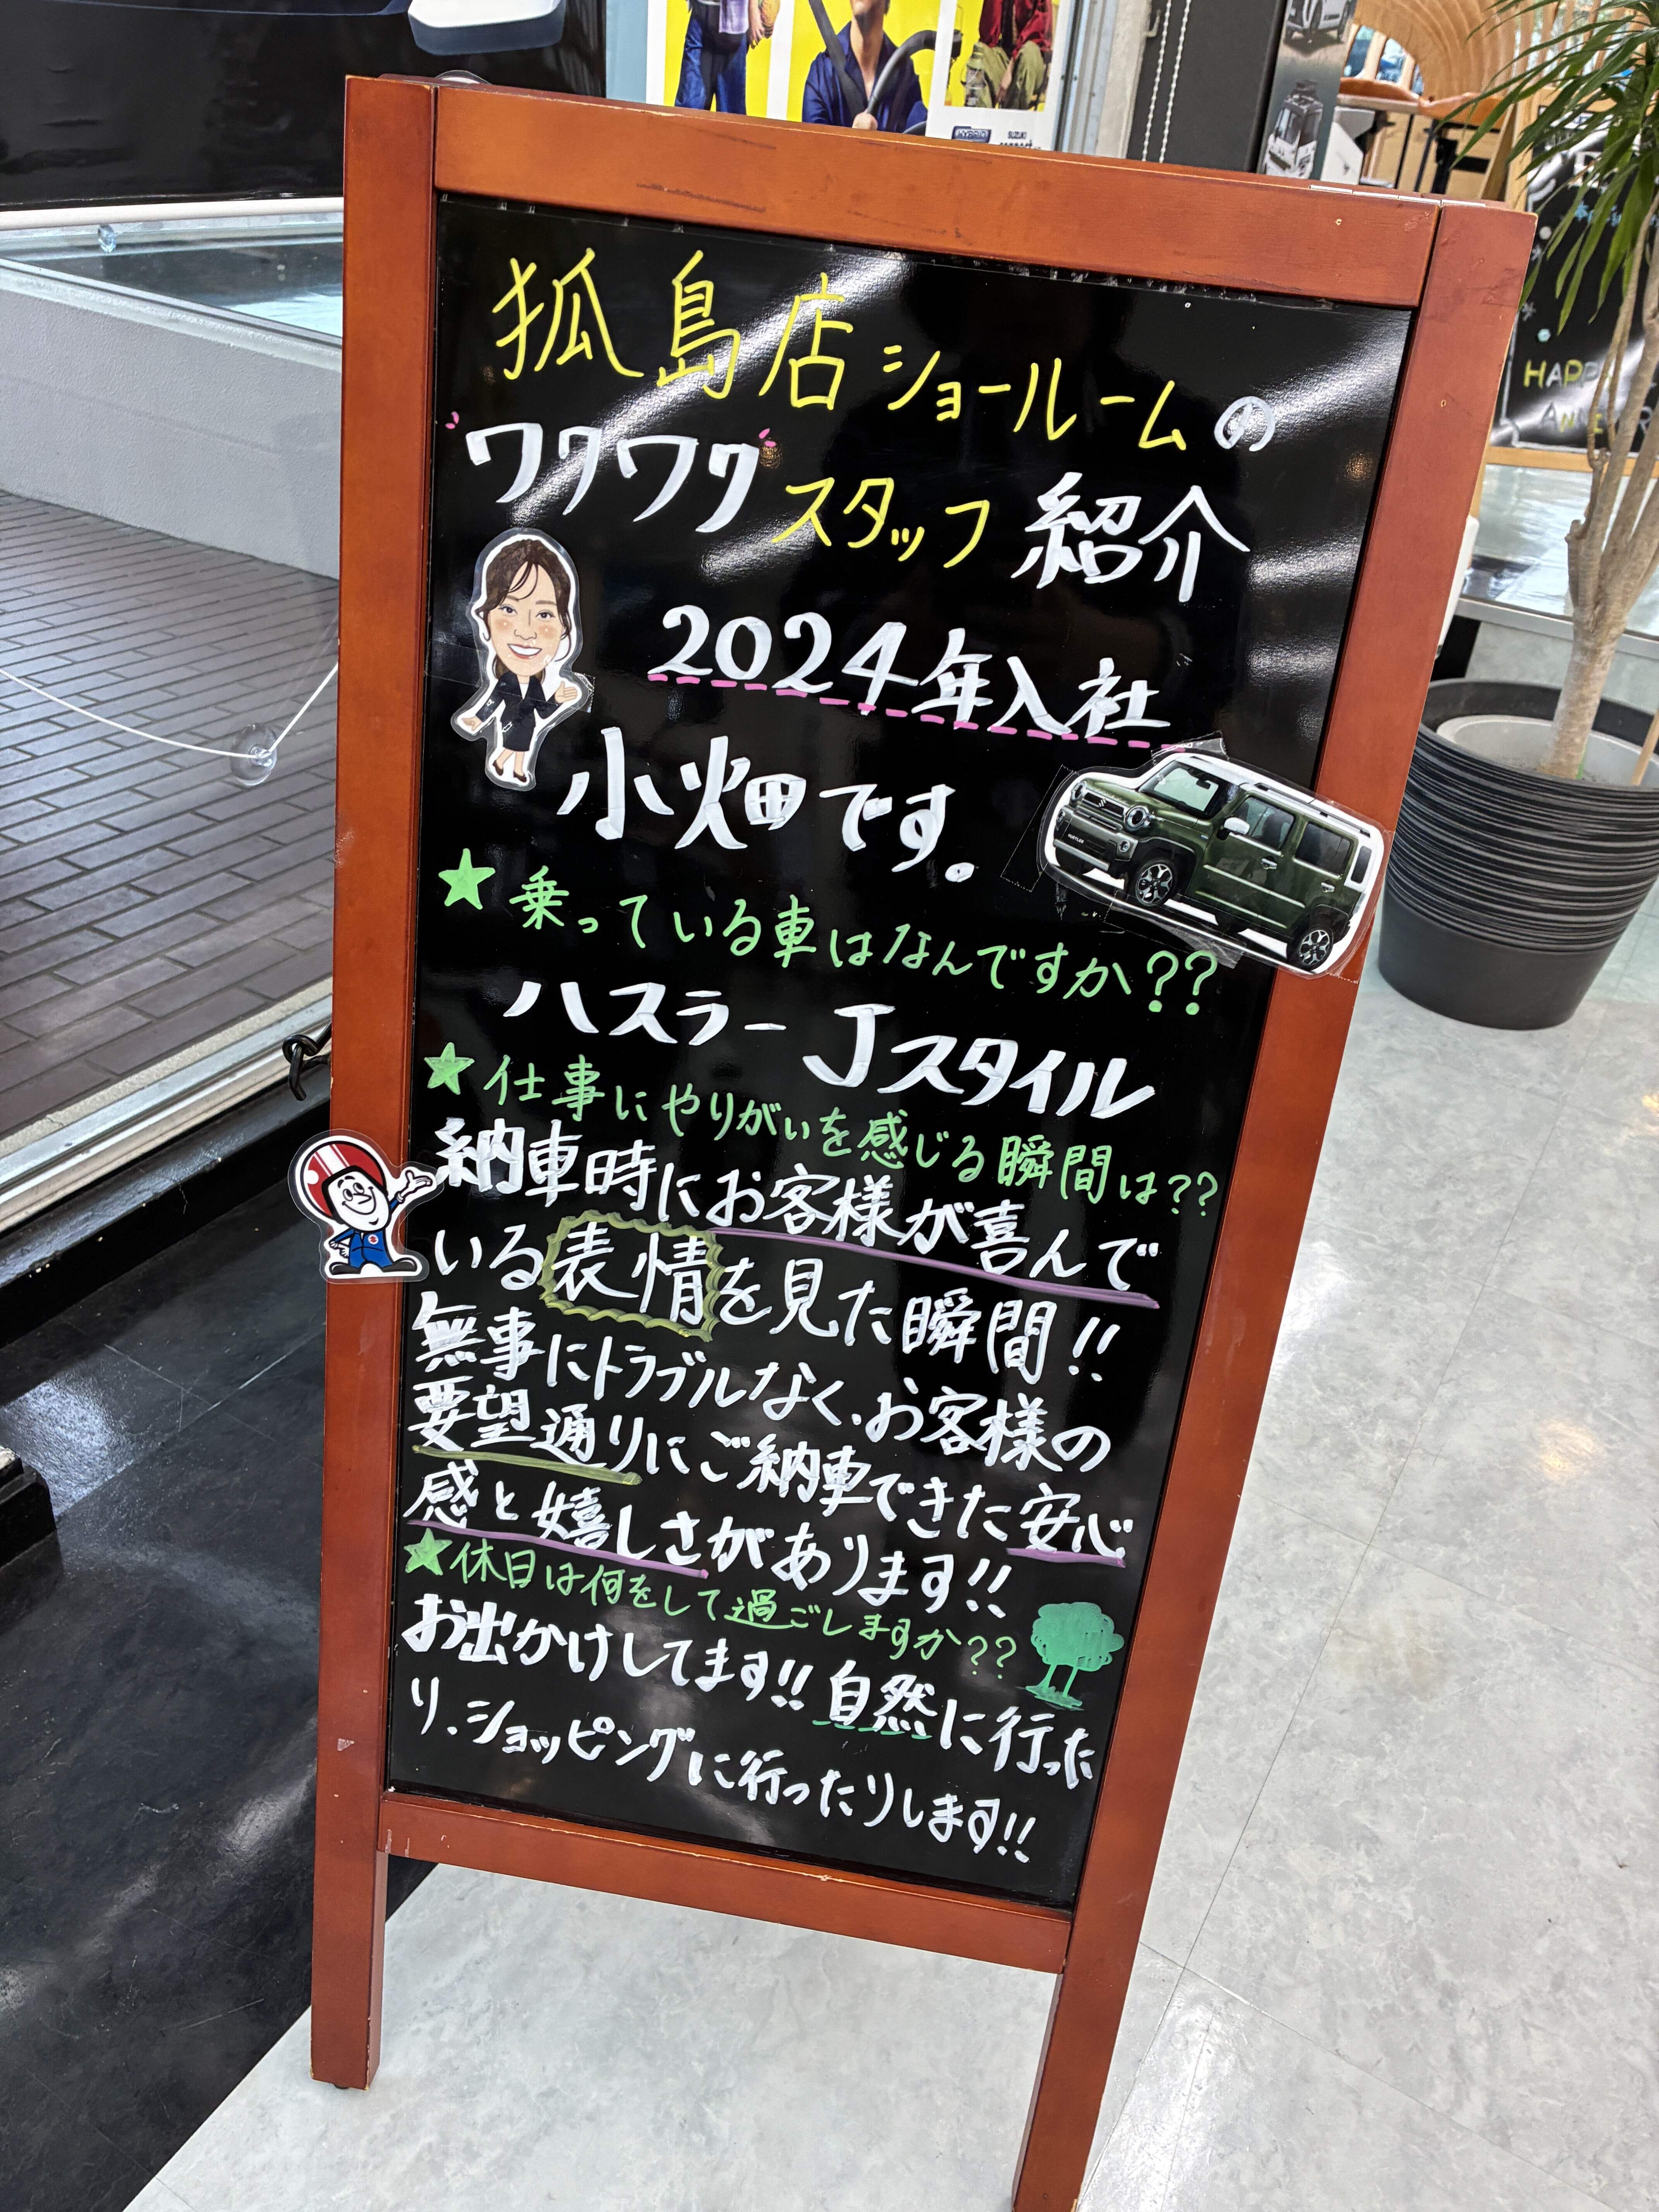 狐島店ショールームの
"ワクワク"スタッフ紹介
2024年入社
小畑です。
★乗っている車はなんですか??
ハスラー Jスタイル
★仕事にやりがいを感じる瞬間は??
納車時にお客様が喜んで
いる表情を見た瞬間!!
無事にトラブルなく、お客様の
要望通りにご納車できた安心
感と嬉しさがあります!!
★休日は何をして過ごしますか??
お出かけしてます!! 自然に行った
り、ショッピングに行ったりします!!